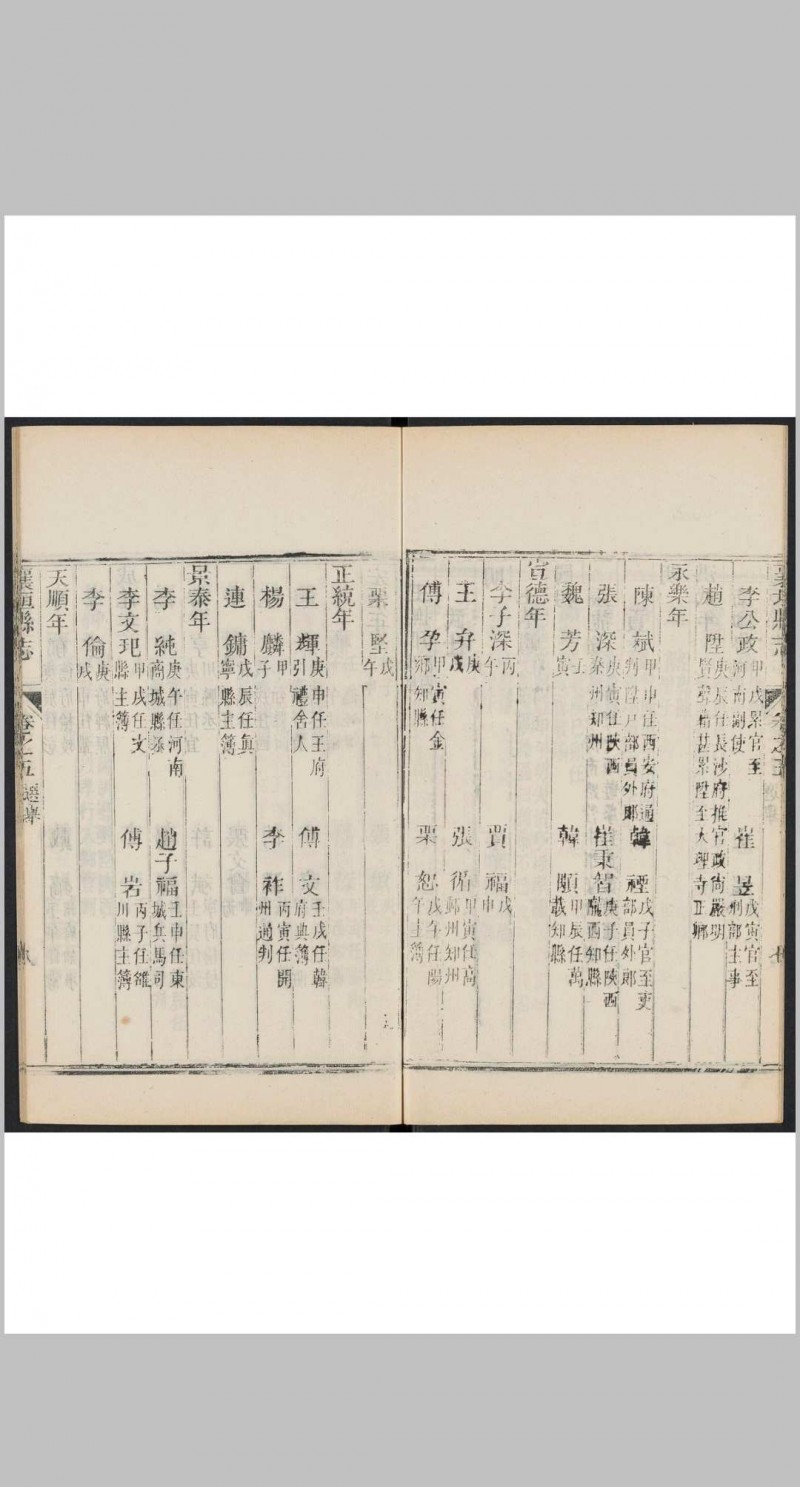 襄垣縣志 卷之五 選舉
李公政 甲戌累官至河南副使 崔昱 戊寅官至刑部主事
趙陞 庚辰任長沙府推官政尚嚴明賢聲藉甚累陞至大理寺正卿
永樂年
陳斌 甲申任西安府通判陞戶部員外郎 韓禋 戊子官至吏部員外郎
張深 庚寅任陝西秦州知州 崔秉智 庚子任陝西隴西知縣
魏芳 壬寅 韓顒 甲辰任萬載知縣
宣德年
李子深 丙午 賈福 戊申
王弁 庚戌 張循 甲寅任高郵州知州
傅孕 甲寅任金鄉知縣 栗恕 戊午任陽主簿
栗主堅 戊午
正統年
王輝 庚申任王府引禮舍人 傅文 壬戌任韓府典簿
楊麟 甲子 李祚 丙寅任開州通判
連鏞 戊辰任真寧縣主簿
景泰年
李純 庚午任河南商城縣丞 趙子福 壬申任東城兵馬司
李文玘 甲戌任文縣主簿 傅岩 丙子任雒川縣主簿
李倫 庚戌
天順年
襄垣縣志 卷之五 選舉